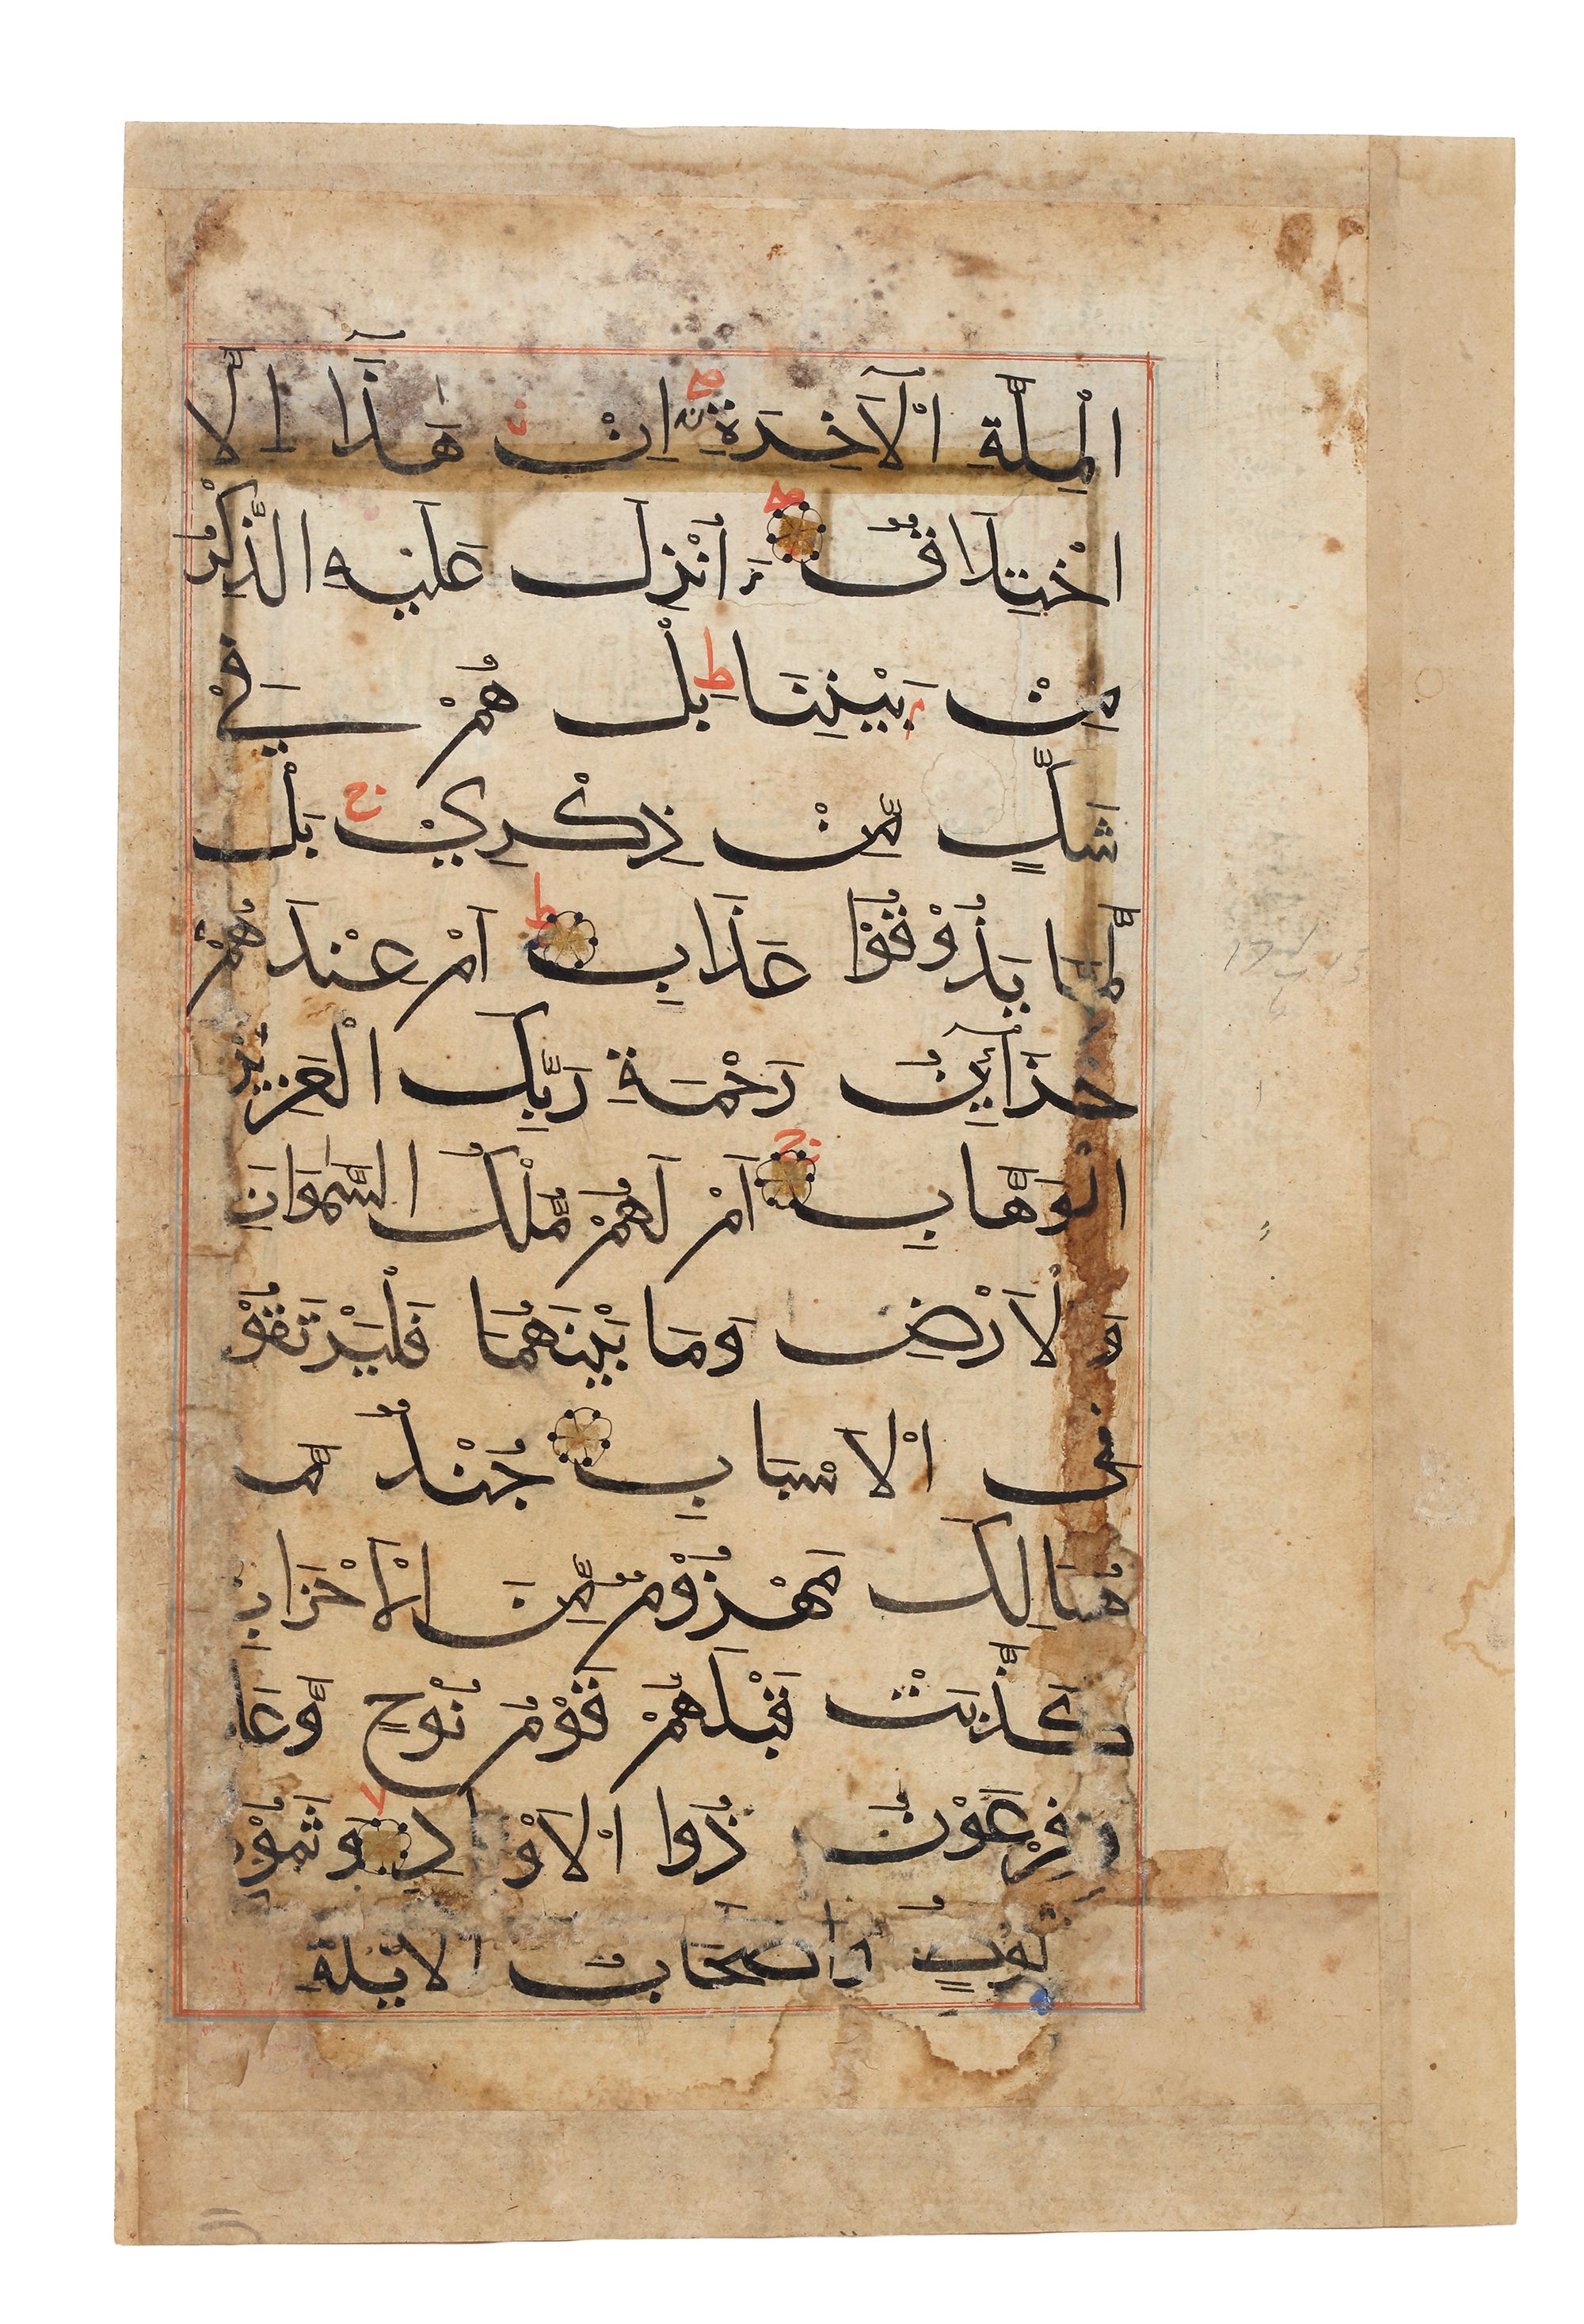 الْمِلَّةِ الْآخِرَةِ اِنْ هَٰذَآ اِلَّا
اخْتِلَاقٌ ءَ اُنْزِلَ عَلَيْهِ الذِّكْرُ
مِنْ بَيْنِنَا بَلْ هُمْ فِيْ
شَكٍّ مِّنْ ذِكْرِيْ بَلْ
لَّمَّا يَذُوْقُوْا عَذَابِ اَمْ عِنْدَهُمْ
خَزَآئِنُ رَحْمَةِ رَبِّكَ الْعَزِيْزِ
الْوَهَّابِ اَمْ لَهُمْ مُّلْكُ السَّمٰوَاتِ
وَ لْاَرْضِ وَمَا بَيْنَهُمَا فَلْيَرْتَقُوْ
فِى الْاَسْبَابِ جُنْدٌ مَّا
هُنَالِكَ مَهْزُوْمٌ مِّنَ الْاَحْزَابِ
كَذَّبَتْ قَبْلَهُمْ قَوْمُ نُوْحٍ وَّعَا
دٌ وَفِرْعَوْنُ ذُوا الْاَوْ دِ وَثَمُوْدُ
لُوْطٍ وَاصْحَابُ الْايْكَةِ